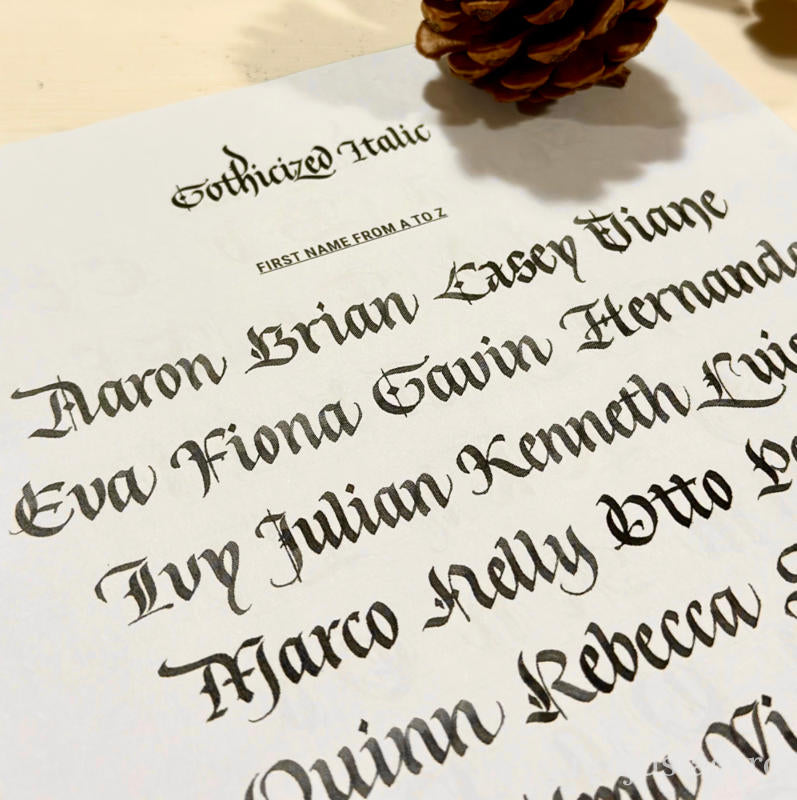 Gothicized Italic
FIRST NAME FROM A TO Z
Aaron Brian Casey Diane
Eva Fiona Gavin Hernando
Ivy Julian Kenneth Luis
Marco Nelly Otto
Quinn Rebecca